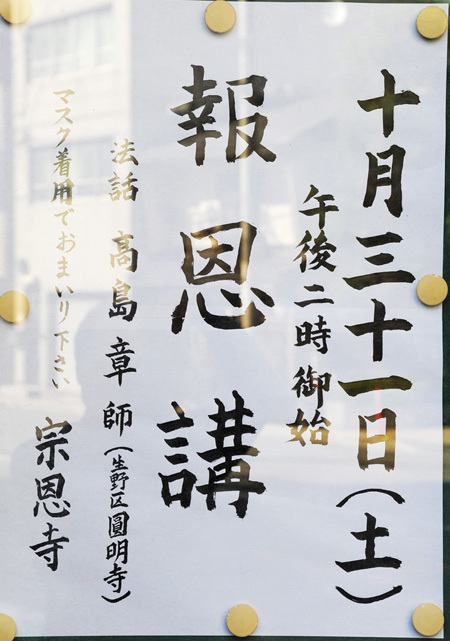 十月三十一日(土)
午後二時御始
報恩講
法話 高島章師(生野区圓明寺)
マスク着用でおまいり下さい
宗恩寺